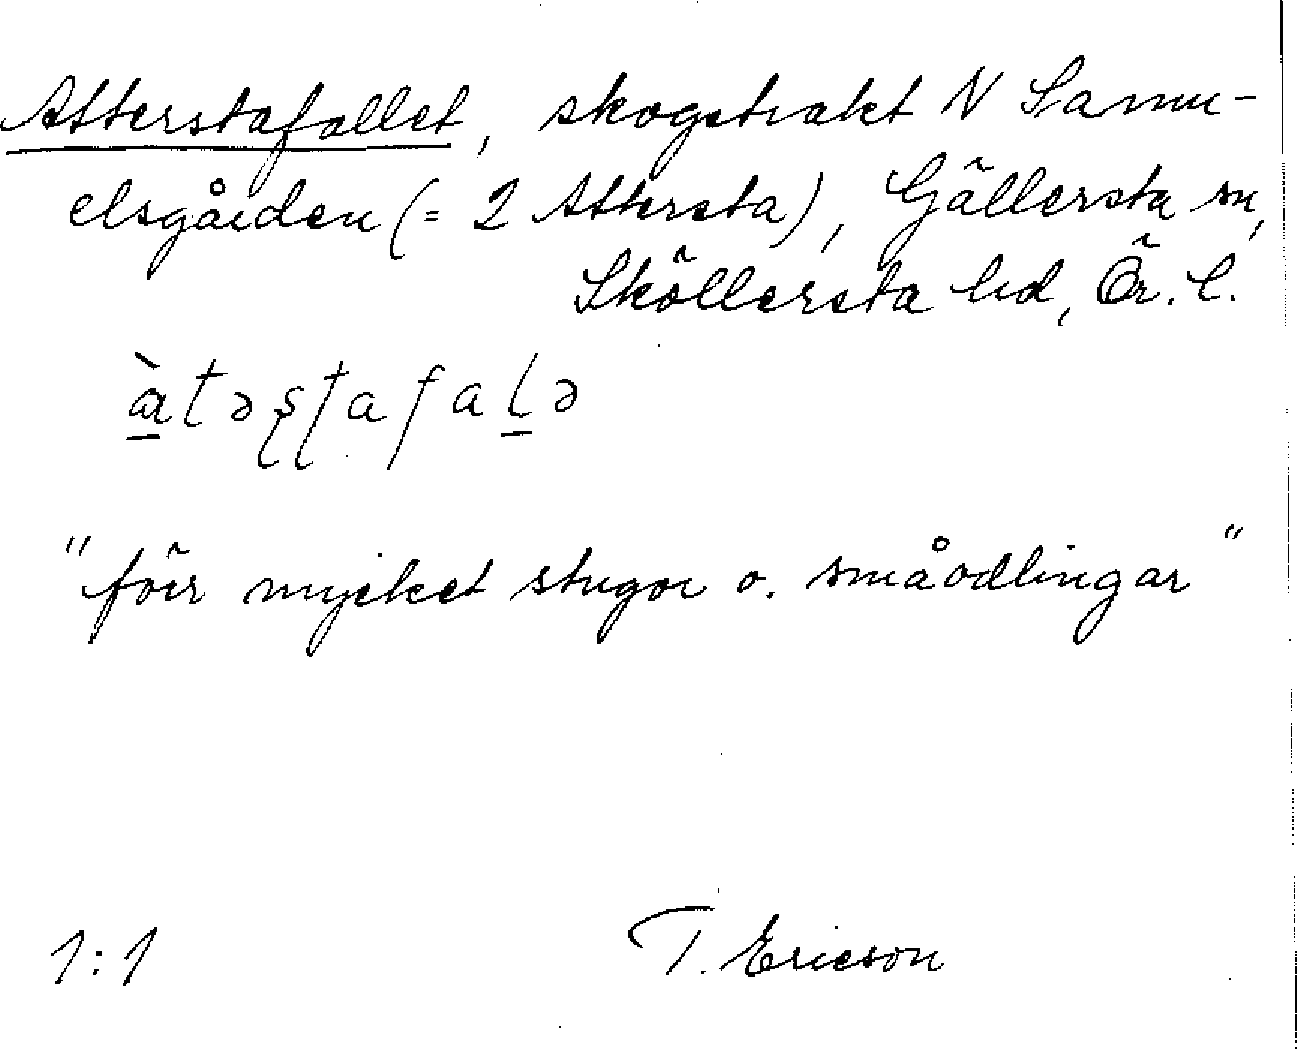 Atterstafallet, skogstrakt N Samu-
elsgården (= 2 Attersta), Gällersta sn,
Sköllersta hd, Ör. l.
àtəʂʈafaḷə
"förr mycket stugor o. småodlingar"
1:1 T. Ericson